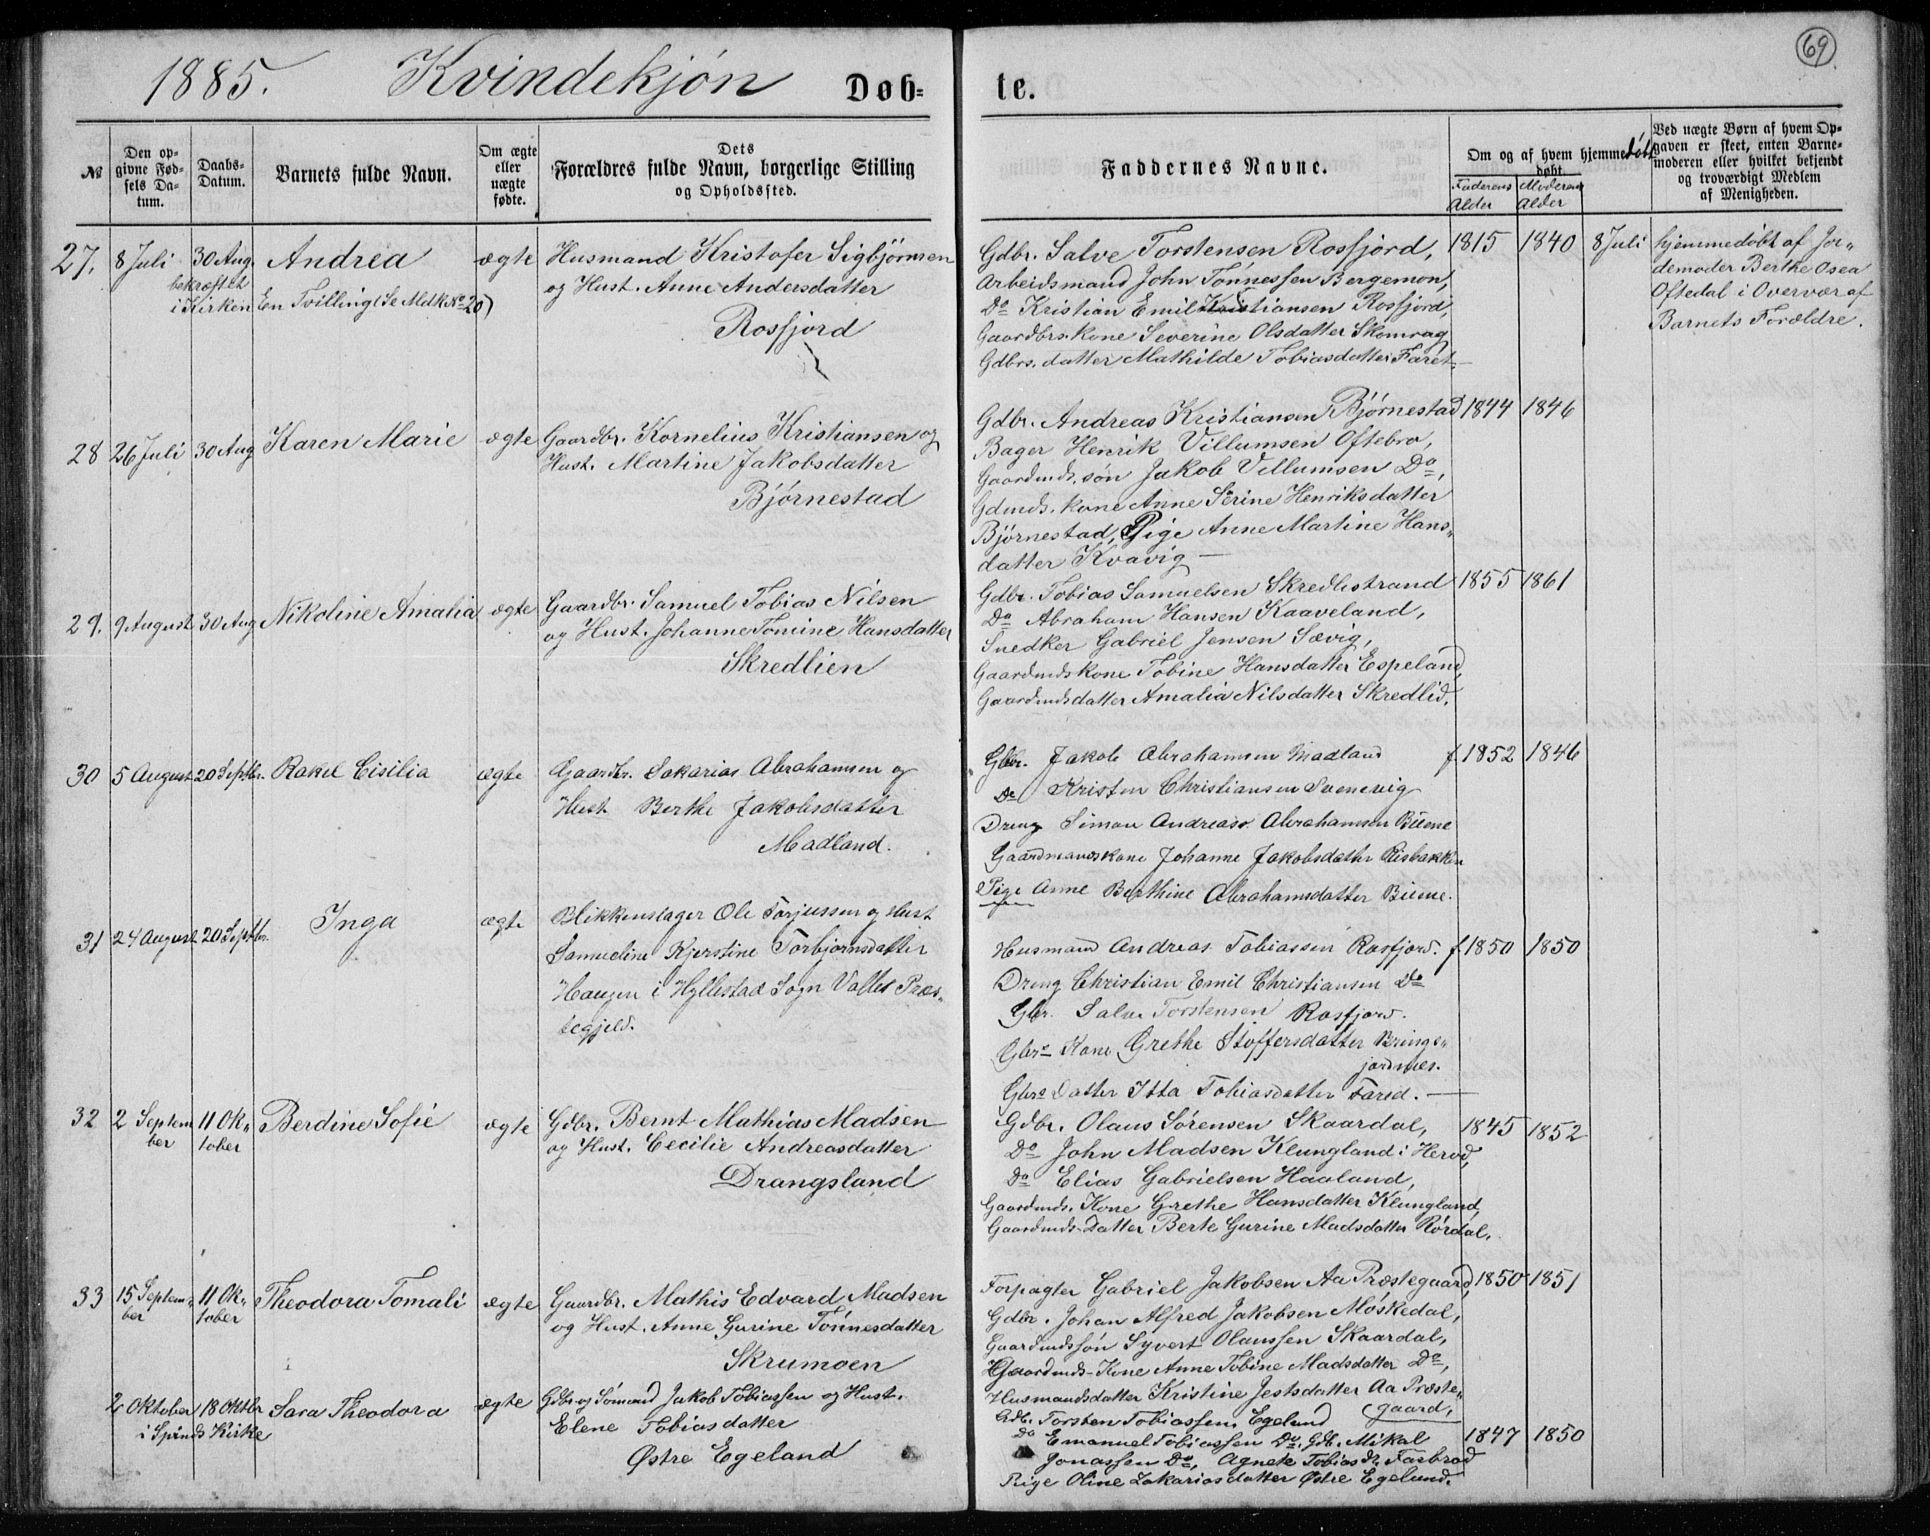 1885. Kvindekjön Døb= te. 69
№
Den opgivne Fødsels Datum.
Daabs-Datum.
Barnets fulde Navn.
Om ægte eller uægte fødte.
Dets Forældres fulde Navn, borgerlige Stilling og Opholdssted.
Faddernes Navne.
Om og af hvem hjemmedøbt.
Faderens Alder
Moderens Alder
Ved uægte Børn af hvem Opgaven er skeet, enten Barnemoderen eller hvilket bekjendt og troværdigt Medlem af Menigheden.
27. 8 Juli 30 Aug. Andrea ægte Husmand Kristofer Sigbjörnsen
bekræftet
i Kirken En Tvilling (Se Mdk № 20)
og Hust. Anne Andersdatter
Rosfjord
Gdbr. Salve Torstensen Rosfjord, 1815 1840 8 Juli
Arbeidsmand John Tönnessen Bergemon,
Do Kristian Emil Kristiansen Rosfjord,
Gaardbrs. kone Severine Olsdatter Skomrag
Gdbrs. datter Mathilde Tobiasdatter Faret
hjemmedöbt af Jor-
demoder Berthe Osea
Oftedal i Overvær af
Barnets Forældre.
28 26 Juli 30 Aug Karen Marie ægte Gaardbr. Kornelius Kristiansen og
Hust. Martine Jakobsdatter
Björnestad
Gdbr. Andreas Kristiansen Björnestad 1844 1846
Bager Henrik Villumsen Oftebro,
Gaardmds. sön Jakob Villumsen Do,
Gdmds. kone Anne Serine Henriksdatter
Björnestad, Pige Anne Martine Hans-
datter Kvavig
29. 9 August 30 Aug Nikoline Amalia ægte Gaardbr. Samuel Tobias Nilsen
og Hust. Johanne Tomine Hansdatter
Skredlien
Gdbr. Tobias Samuelsen Skredlistrand 1855 1861
Do Abraham Hansen Kaaveland,
Snedker Gabriel Jensen Sævig,
Gaardmdskone Tobine Hansdatter Espeland,
Gaardmdsdatter Amalia Nilsdatter Skredlid.
30 5 August 20 Septbr. Rakel Cisilia ægte Gaardbr. Sakarias Abrahamsen og
Hust Berthe Jakobsdatter
Madland.
Gbr. Jakob Abrahamsen Madland f 1852 1846
Do Kristen Christiansen Svenevig
Dreng Simon Andreas Abrahamsen Biene
Gaardmandskone Johanne Jakobsdatter Risbakken
Pige Anne Berthine Abrahamsdatter Biene.
31 24 August 20 Septbr. Inga ægte Blikkenslager Ole Torjussen og Hust
Samueline Kjerstine Torbjörnsdatter
Haugen i Hyllestad Sogn Valles Præs-
tegjeld.
Husmand Andreas Tobiassen Rosfjord. f 1850 1850
Dreng Christian Emil Christiansen Do
Gbr. Salve Torstensen Rosfjord.
Gbrs Kone Grethe Stoffersdatter Brings-
jordsnes.
Gbrs Datter Itta Tobiasdatter Fared.
32 2 Septem 11 Ok- Berdine Sofie ægte Gdbr. Bernt Mathias Madsen
ber tober
og Hust. Cecilie Andreasdatter
Drangsland
Gdbr. Olaus Sörensen Skaardal, 1845 1852
Do John Madsen Klungland i Herod,
Do Elias Gabrielsen Haaland,
Gaardmds. Kone Grethe Hansdatter Klungland,
Gaardmds-Datter Berte Gurine Madsdatter Rördal.
33 15 Septem- 11 Ok- Theodora Tomali ægte Gaardbr. Mathis Edvard Madsen
ber tober
og Hust. Anne Gurine Tönnesdatter
Skrumoen
Forpagter Gabriel Jakobsen Aa Præstegaard, 1850 1851
Gdbr. Johan Alfred Jakobsen Möskedal,
Gaardmdssön Syvert Olaussen Skaardal,
Gaardmds-Kone Anne Tobine Madsdatter Do,
Husmandsdatter Kristine Jestsdatter Aa Præste-
gaard,
2 Oktober 18 Oktbr Sara Theodora ægte Gdbr og Sömand Jakob Tobiassen og Hust.
i Spinds Kirke
Elene Tobiasdatter
Østre Egeland
Gdb. Torsten Tobiassen Egeland
Do Emanuel Tobiassen Do, Gdb. Mikal 1847 1850
Jonassen Do, Agnete Tobiasdr. Farbrod
Pige Oline Zakariasdatter Østre Egeland.